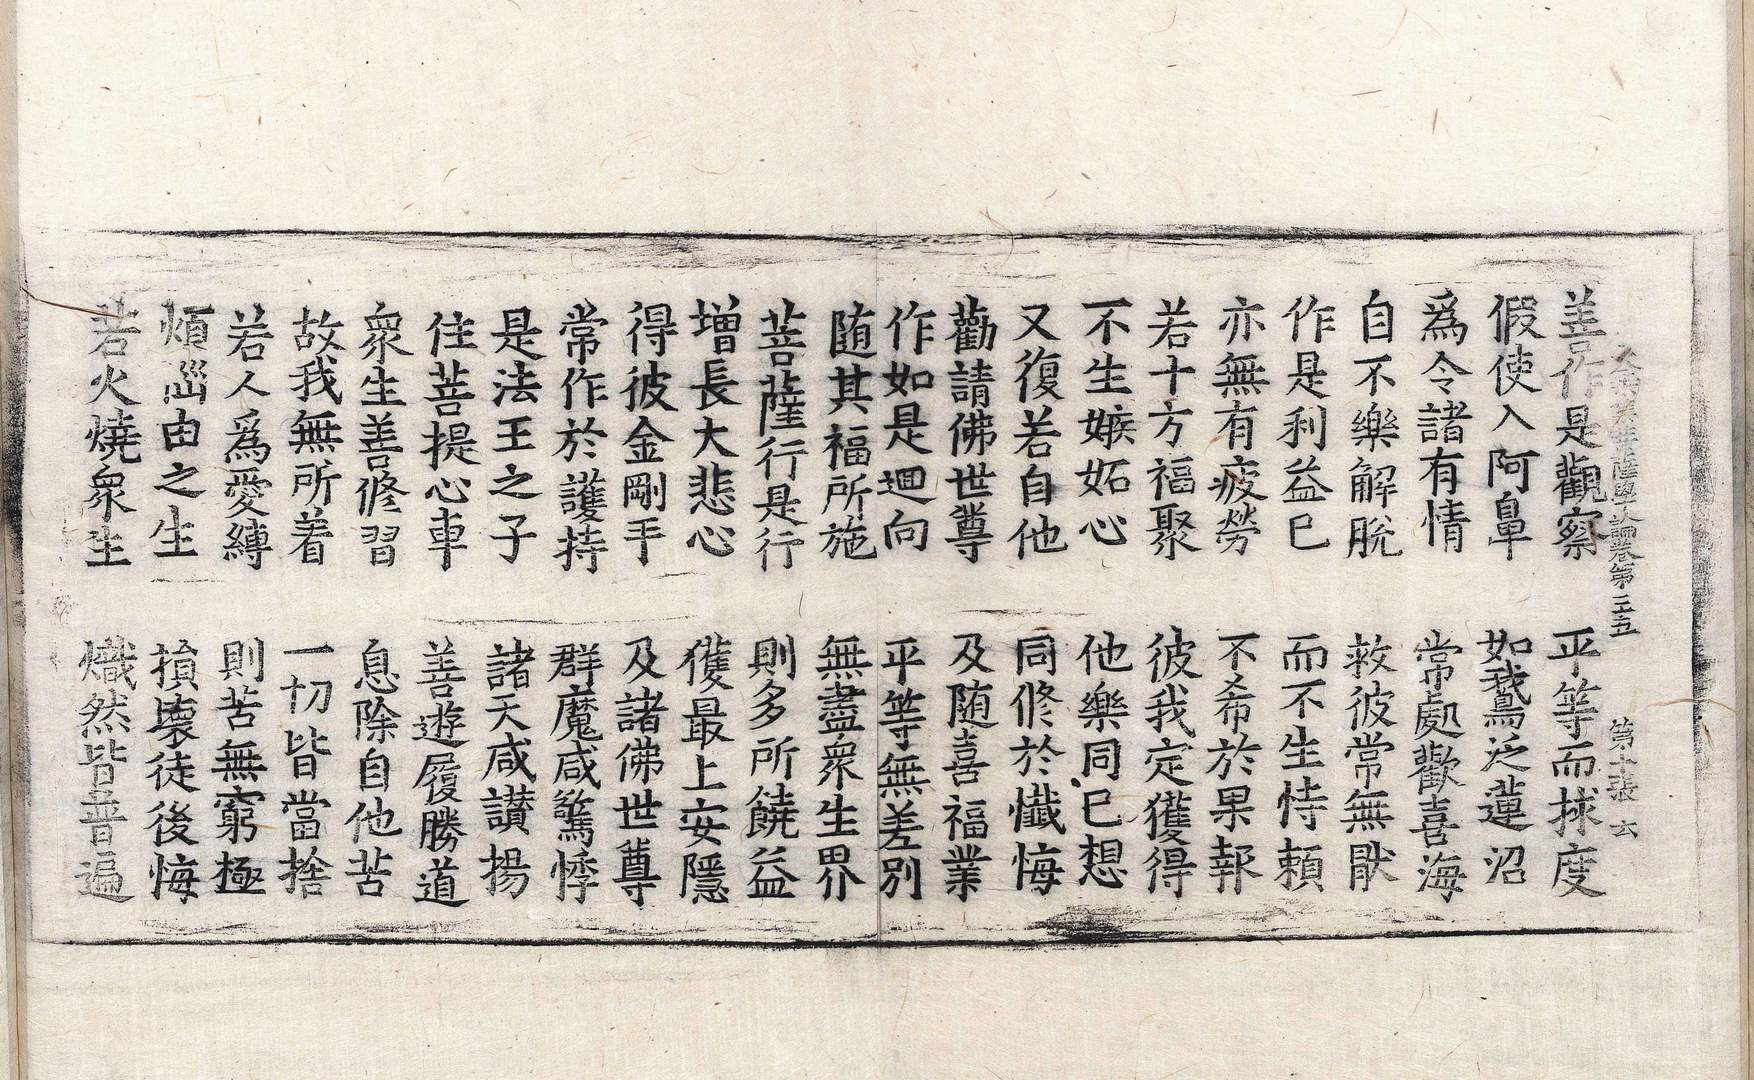 大乘集菩薩學論卷第二五 第十張 六
善作是觀察 平等而捄度
假使入阿鼻 如鵞泛蓮沼
爲令諸有情 常處歡喜海
自不樂解脫 救彼常無猒
作是利益已 而不生恃頼
亦無有疲勞 不希於果報
若十方福聚 彼我定獲得
不生嫉妬心 他樂同已想
又復若自他 同修於懺悔
勸請佛世尊 及随喜福業
作如是迴向 平等無差別
随其福所施 無盡衆生界
菩薩行是行 則多所饒益
增長大悲心 獲最上安隱
得彼金剛手 及諸佛世尊
常作於護持 群魔咸驚悸
是法王之子 諸天咸讃揚
住菩提心車 善遊履勝道
衆生善修習 息除自他苦
故我無所着 一切皆當捨
若人爲愛縛 則苦無窮極
煩惱由之生 損壞徒後悔
若火燒衆生 熾然皆普遍